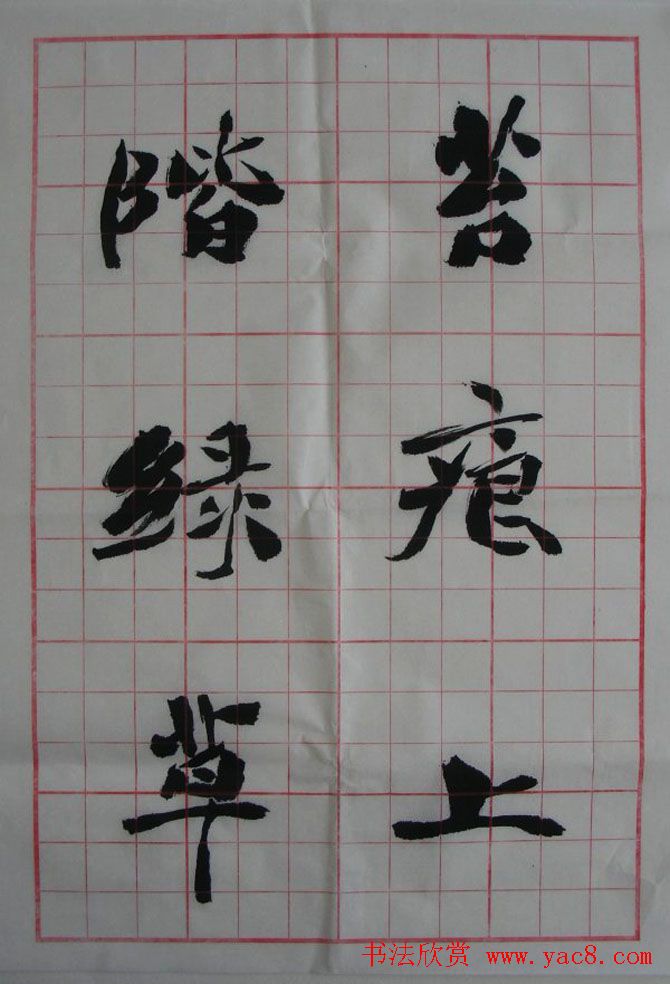 苔痕上
階綠草
书法欣赏 www.yac8.com